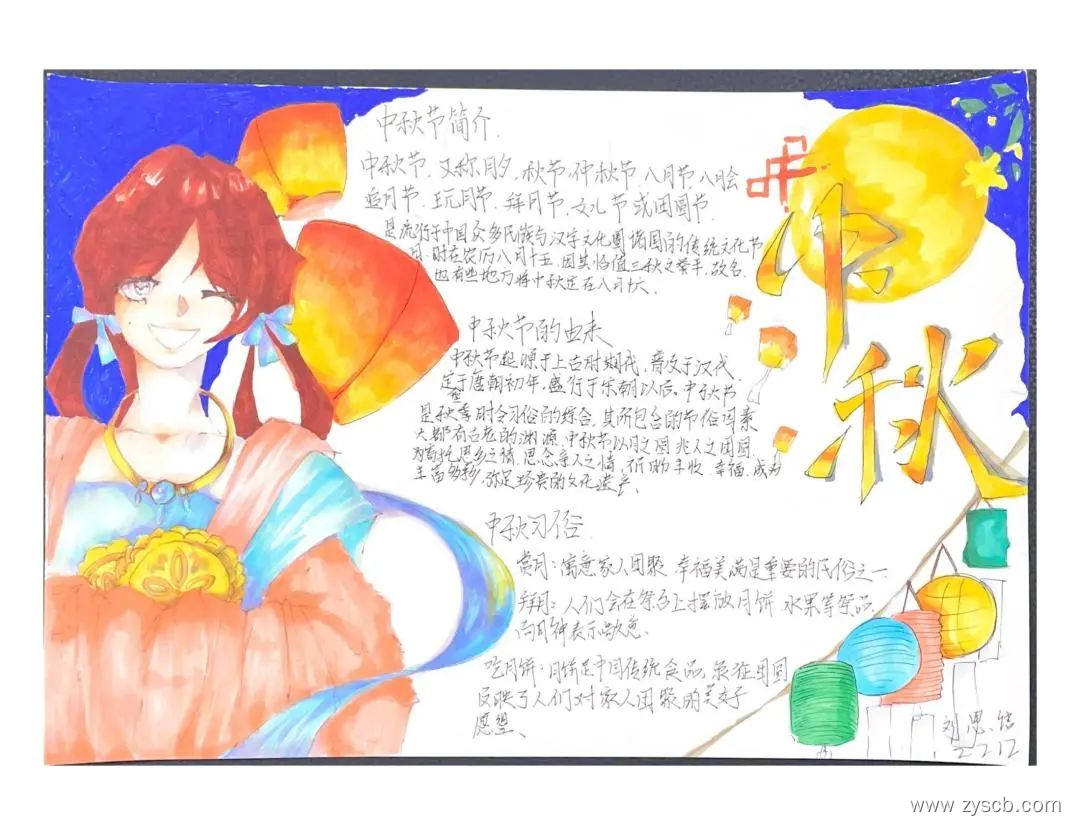 中秋节简介
中秋节,又称月夕,秋节,仲秋节,八月节,八月会
追月节、玩月节、拜月节、女儿节或团圆节.
是流行于中国众多民族与汉字文化圈诸国的传统文化节
日.时在农历八月十五.因其恰值三秋之半,故名.
也有些地方将中秋定在八月十六.
中秋节的由来
中秋节起源于上古时期代,普及于汉代
定型于唐朝初年,盛行于宋朝以后。中秋节
是秋季时令习俗的综合,其所包含的节俗因素
大都有古老的渊源.中秋节以月之圆兆人之团圆
为寄托思乡之情,思念亲人之情,祈盼丰收 幸福.成为
丰富多彩,弥足珍贵的文化遗产、
中秋习俗
赏月:寓意家人团聚 幸福美满是重要的民俗之一
拜月:人们会在祭台上摆放月饼 水果等祭品
向月神表示敬意.
吃月饼:月饼是中国传统食品,象征团圆
反映了人们对家人团聚的美好
愿望、
中秋
刘思
2212
www.zyscb.com